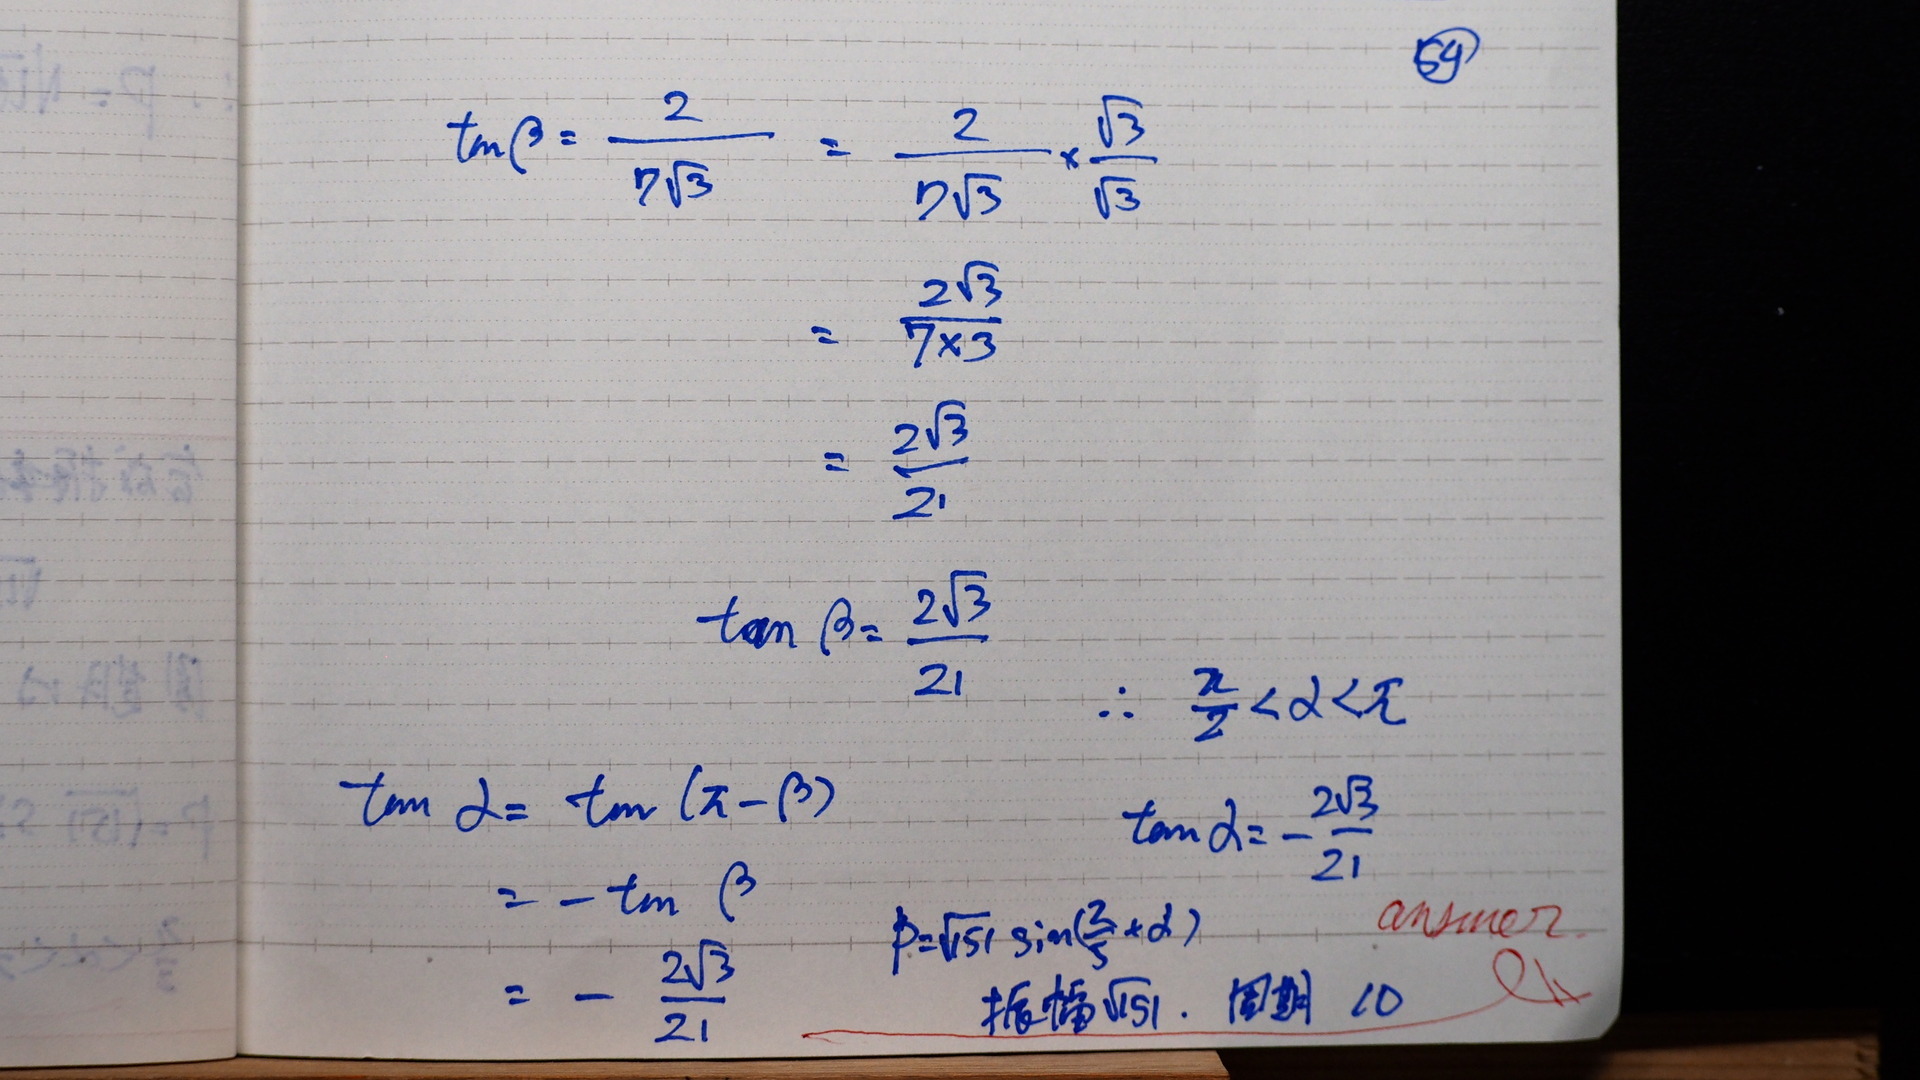 54
tan β = 2/7√3 = 2/7√3 × √3/√3
= 2√3/7×3
= 2√3/21
tan β = 2√3/21
∴ π/2 < α < π
tan α = tan (π - β)
tan α = - 2√3/21
= - tan β
p = √151 sin(π/5 + α)
answer.
= - 2√3/21
振幅√151. 周期 10